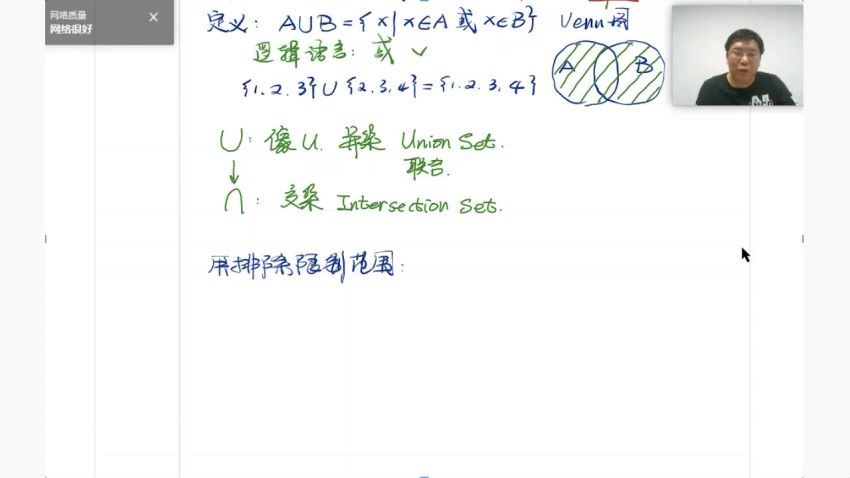 网络质量
网络很好
定义: A∪B={x|x∈A 或 x∈B} Venn图
逻辑语言: 或 ∨
{1.2.3}∪{2.3.4}={1.2.3.4}
A B
∪: 像U. 并集 Union Set.
联合.
↓
∩: 交集 Intersection Set.
用排除限制范围: